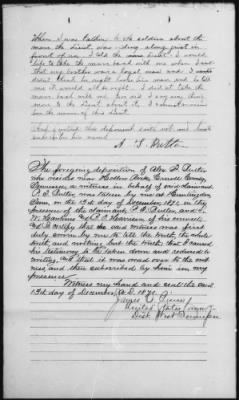 When I was talking to the soldiers about the
mare the Lieut. was along just in
front of me. I told the Lieut. I would
like to take the mare back with me when I
that my brother was a loyal man and I
think he right and to
me it would all right. I did not take the
mare back with me nor did I say any thing
more to the Lieut about it.
the name of this Lieut.
And further this deponent saith not and hereto
subscribes his name
A. S. Butler
The foregoing deposition of Alex S. Butler
who resides near Carroll County
Tennessee a witness in behalf of said claimant
P. F. Butler was taken by me at Huntingdon
Tenn, on the 13th day of December 1872 in the
presence of the claimant P. F. Butler, and
of his counsel
and I certify that the said witness was first
duly sworn by me to tell the truth, the whole
truth, and nothing but the truth; that I caused
his testimony to be taken down and reduced to
writing, and that it was read over to the wit-
ness and then subscribed by him in my
presence.
Witness my hand and seal this
13th day of December A.D. 1872.
James
United States
Dist West Tennessee